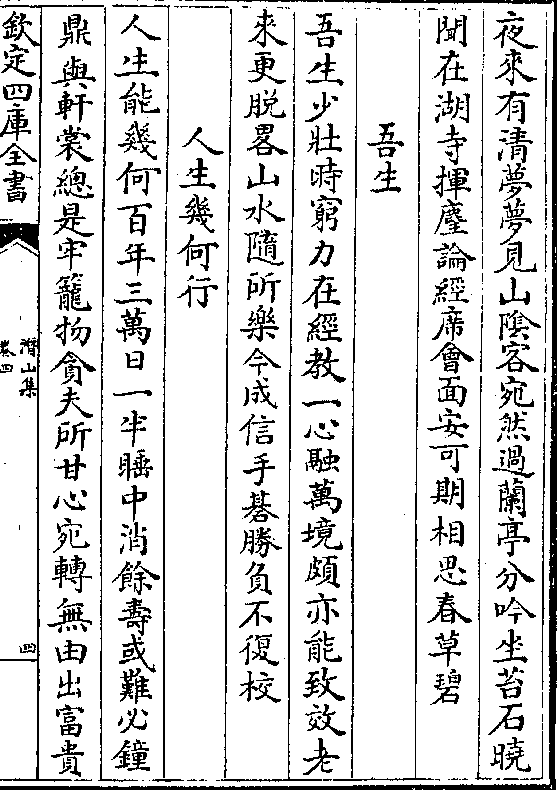 夜來有清夢夢見山陰客宛然過蘭亭分吟坐苔石曉
聞在湖寺揮麈論經席會面安可期相思春草碧
吾生
吾生少壯時窮力在經教一心融萬境頗亦能致效老
來更脫畧山水隨所樂今成信手碁勝負不復校
人生幾何行
人生能幾何百年三萬日一半睡中消餘壽或難必鐘
鼎與軒裳總是牢籠物貪夫所甘心宛轉無由出富貴
欽定四庫全書
潛山集
卷四
四